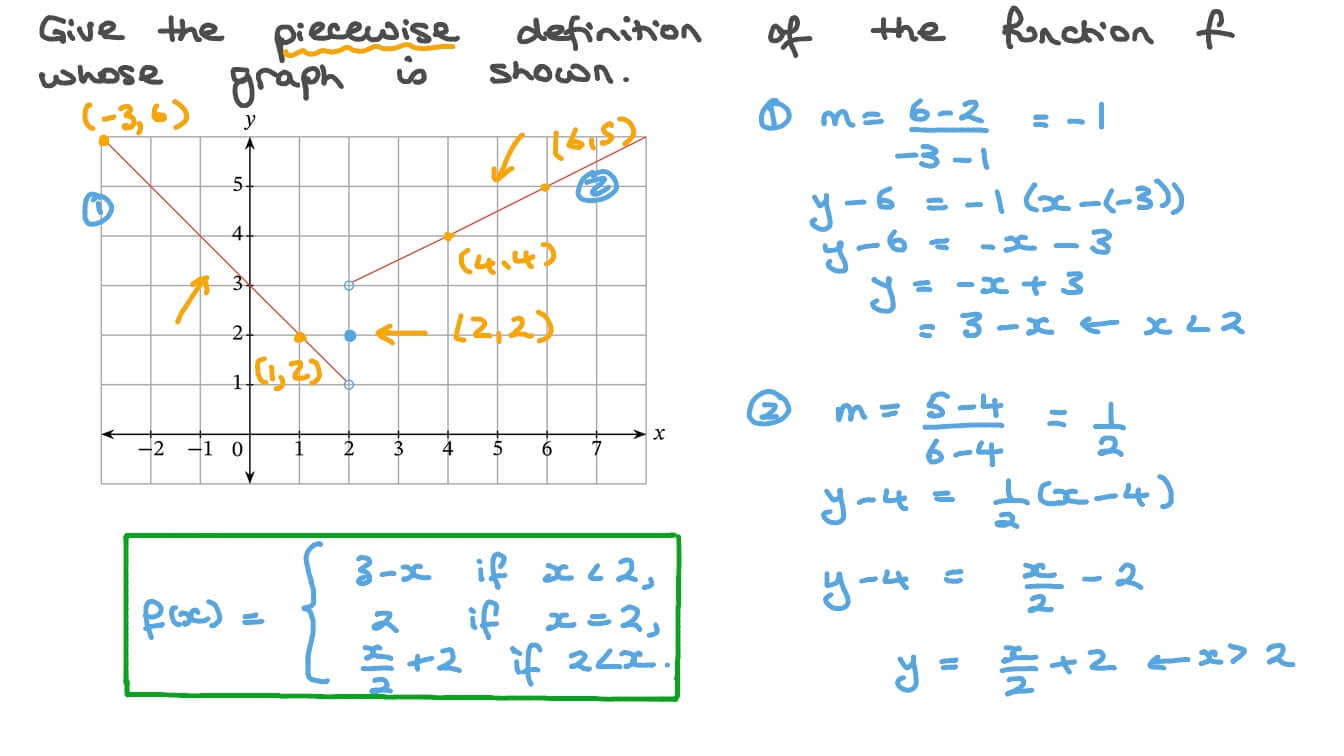 Give the piecewise definition of the function f
whose graph is shown.
(-3,6)
y
(6,5)
①
②
5
4
(4,4)
3
2
(2,2)
(1,2)
1
x
-2 -1 0 1 2 3 4 5 6 7
f(x) = { 3-x if x<2,
2 if x=2,
x/2 +2 if 2<x.
① m= 6-2 / -3-1 = -1
y-6 = -1 (x-(-3))
y-6 = -x - 3
y = -x + 3
= 3-x ← x<2
② m = 5-4 / 6-4 = 1/2
y-4 = 1/2 (x-4)
y-4 = x/2 - 2
y = x/2 + 2 ← x > 2